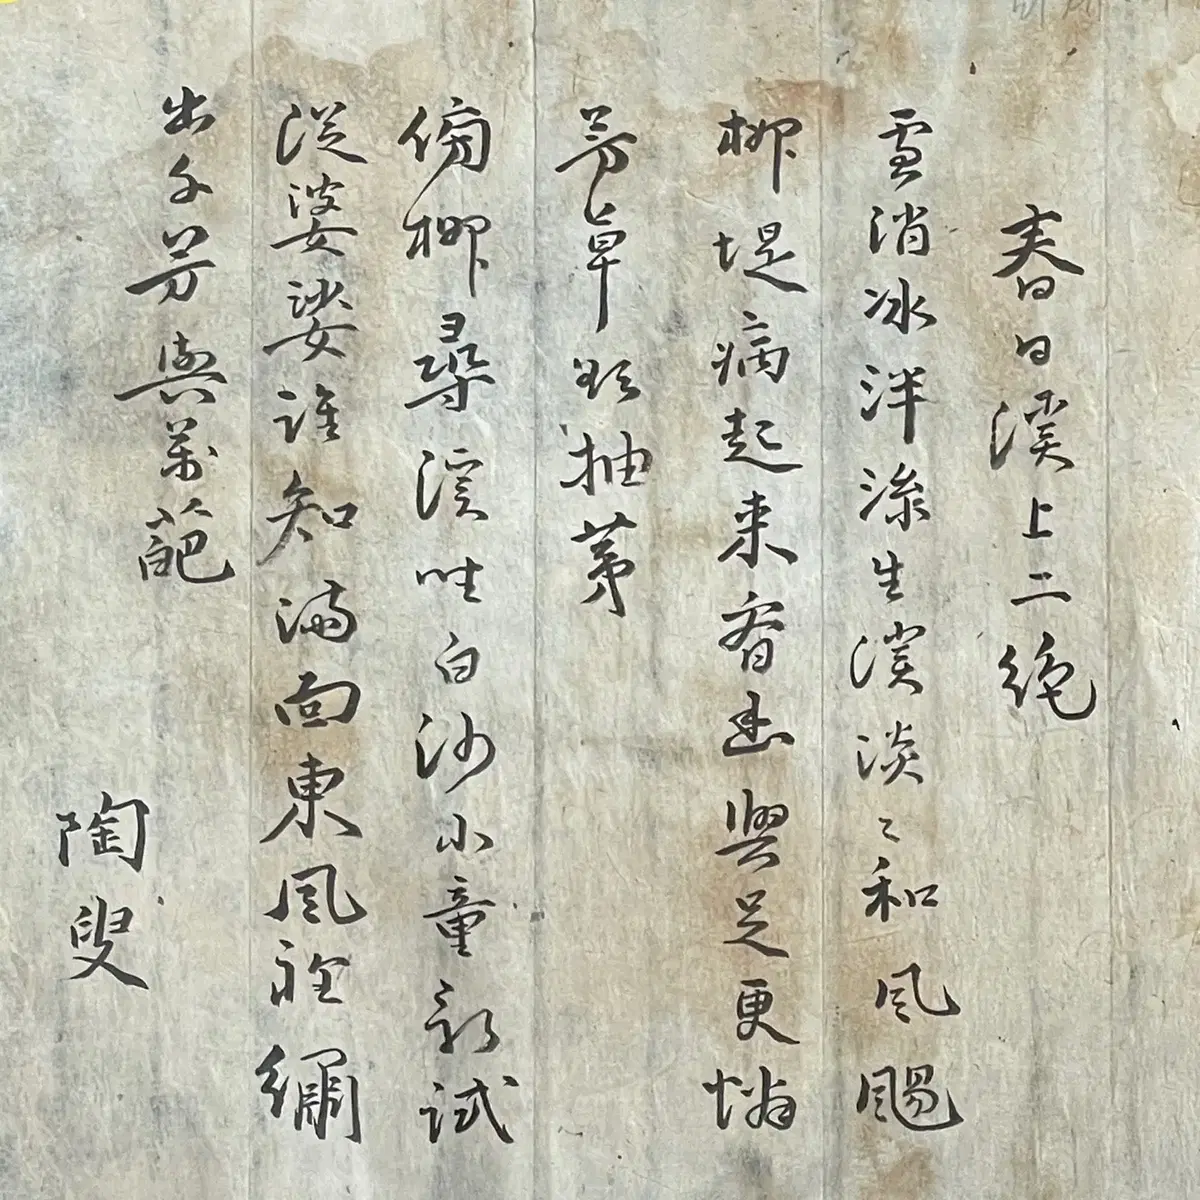 春日溪上二絶
雪消冰泮淥生溪淡〻和風颺
柳堤病起來看幽興足更憐
芳草欲抽荑
傍柳尋溪坐白沙小童新試
從婆娑誰知滿面東風裡繡
出千芳與萬葩
陶叟